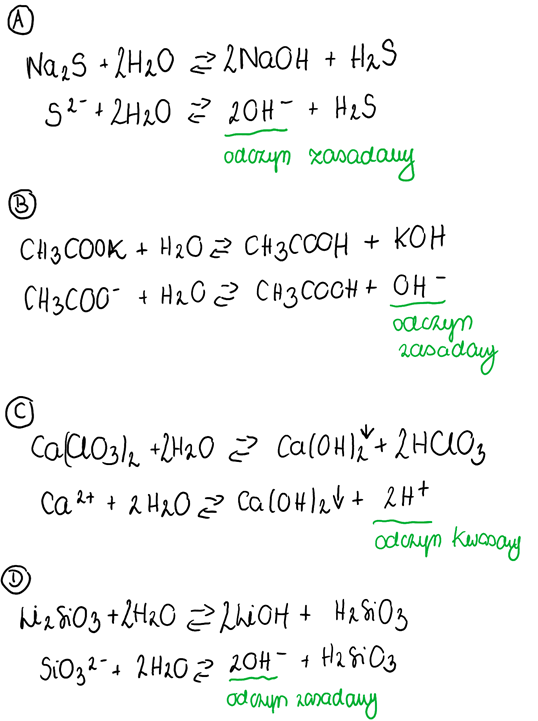 A
Na₂S + 2H₂O ⇌ 2NaOH + H₂S
S²⁻ + 2H₂O ⇌ 2OH⁻ + H₂S
odczyn zasadowy
B
CH₃COOK + H₂O ⇌ CH₃COOH + KOH
CH₃COO⁻ + H₂O ⇌ CH₃COOH + OH⁻
odczyn
zasadowy
C
Ca(ClO₃)₂ + 2H₂O ⇌ Ca(OH)₂↓ + 2HClO₃
Ca²⁺ + 2H₂O ⇌ Ca(OH)₂↓ + 2H⁺
odczyn kwasowy
D
Li₂SiO₃ + 2H₂O ⇌ 2LiOH + H₂SiO₃
SiO₃²⁻ + 2H₂O ⇌ 2OH⁻ + H₂SiO₃
odczyn zasadowy